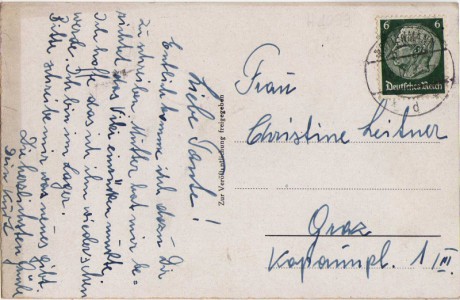 Liebe Tante!
Endlich komme ich dazu Dir
zu schreiben. Mutter hat mir be=
richtet das Viki einrücken mußte.
Ich hoffe das ich ihn wiedersehen
werde. Ich bin im Lager.
Bitte schreibe mir was neues gibt.
Die herzlichsten Grüße
Dein Kurt
Zur Veröffentlichung freigegeben
6 6
Deutsches Reich
d
Frau
Christine Leitner
Graz
1 III